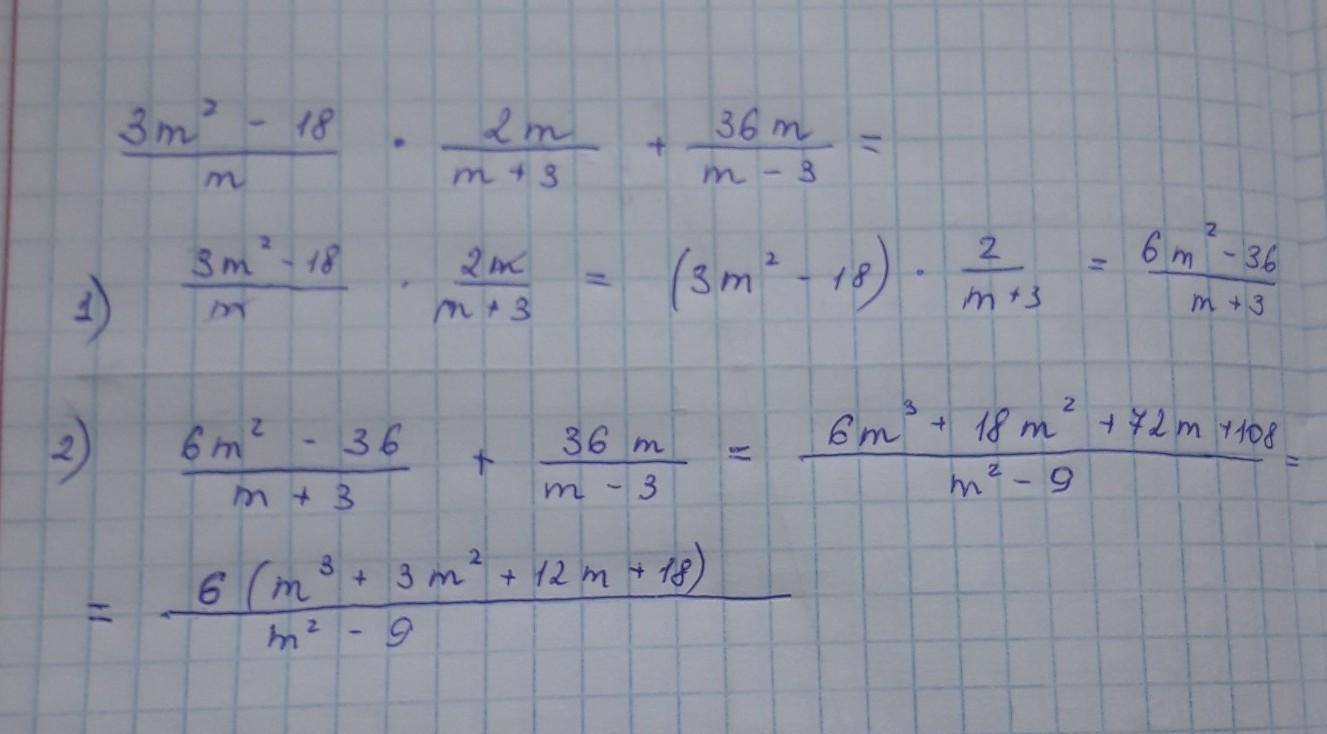 (3m² - 18)/m · 2m/(m + 3) + 36m/(m - 3) =
1) (3m² - 18)/m · 2m/(m + 3) = (3m² - 18) · 2/(m + 3) = (6m² - 36)/(m + 3)
2) (6m² - 36)/(m + 3) + 36m/(m - 3) = (6m³ + 18m² + 72m + 108)/(m² - 9) =
= 6(m³ + 3m² + 12m + 18)/(m² - 9)